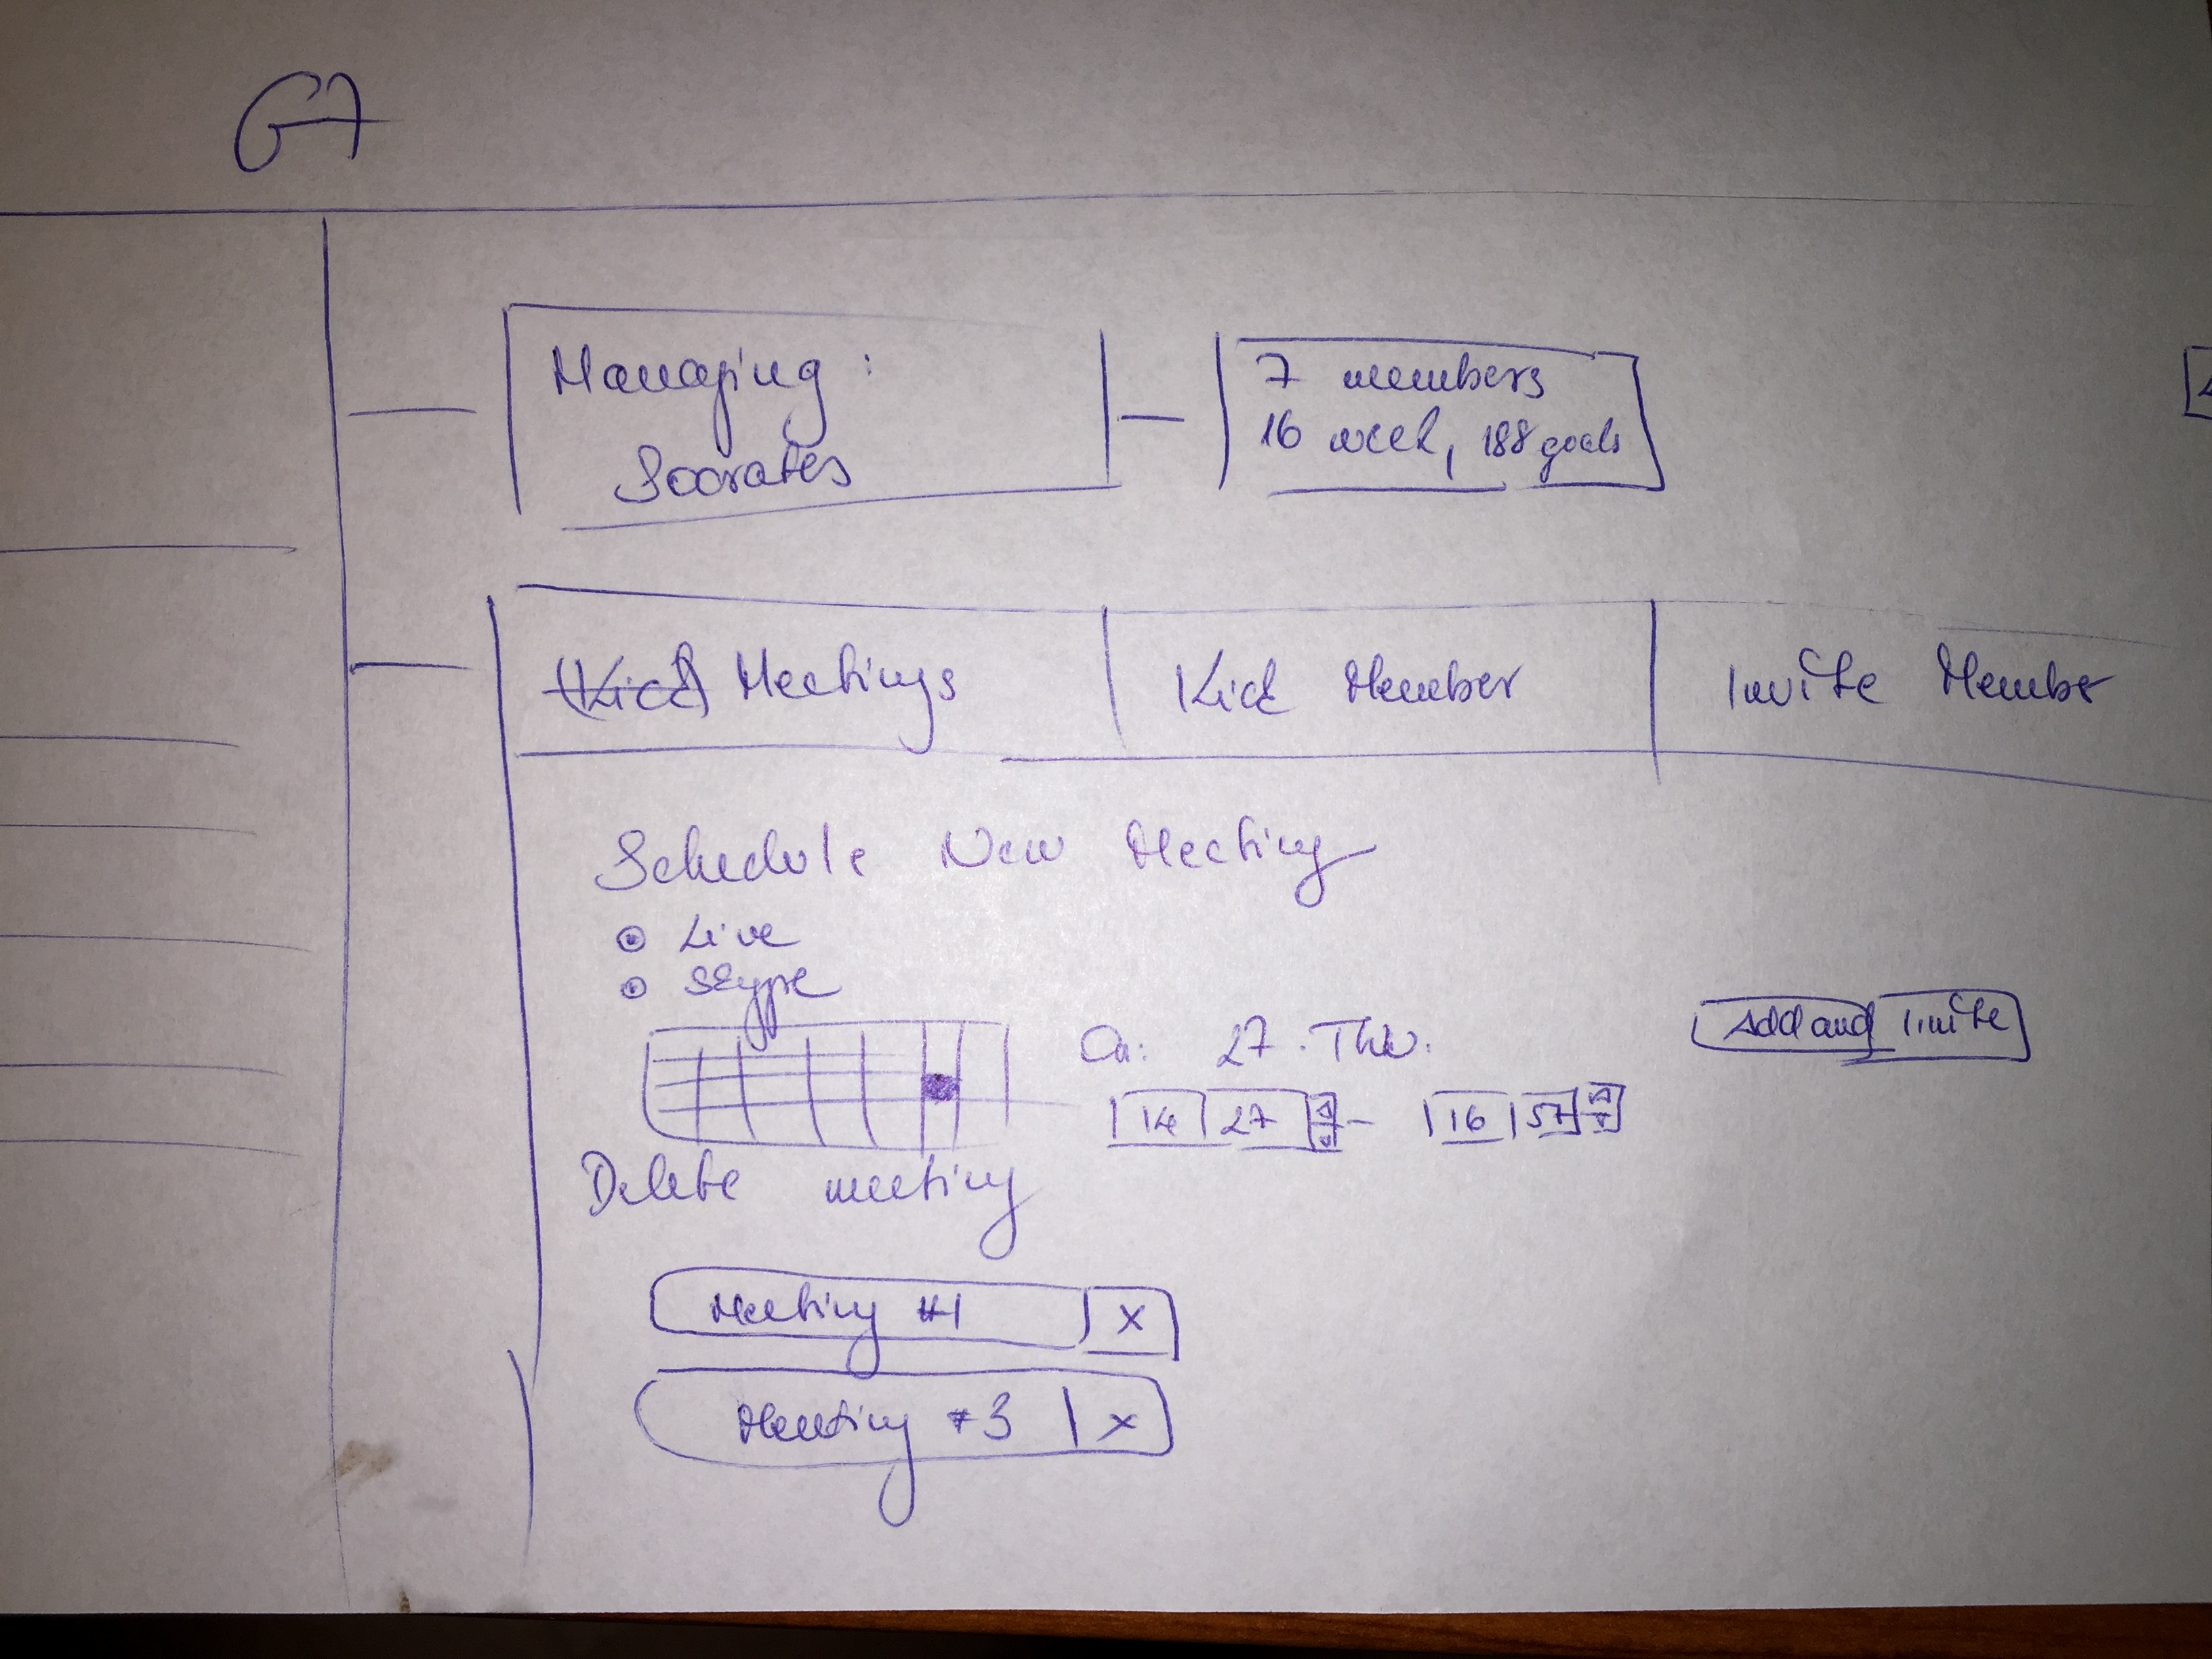 G7
Managing:
Socrates
7 members
16 week, 188 goals
(Kick) Meetings
Kick Member
Invite Member
Schedule New Meeting
Live
Skype
On: 27. Thu.
Add and Invite
14 27 - 16 57
Delete meeting
Meeting #1 X
Meeting #3 X